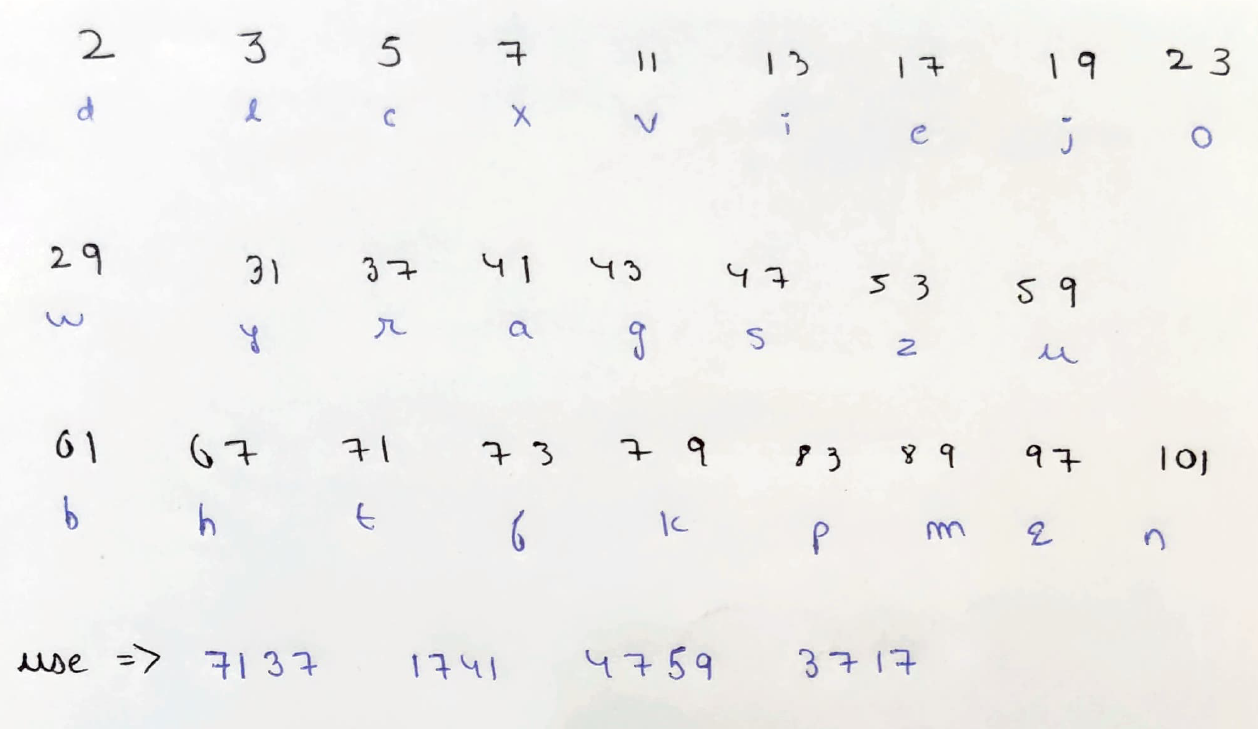 2 3 5 7 11 13 17 19 23
d l c x v i e j o
29 31 37 41 43 47 53 59
w y r a g s z u
61 67 71 73 79 83 89 97 101
b h t f k p m q n
use => 7137 1741 4759 3717